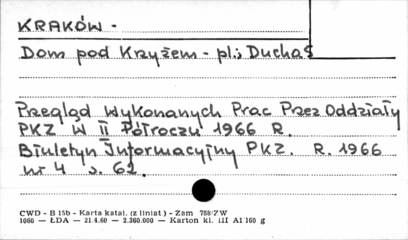 KRAKÓW -
Dom pod Krzyżem - pl. Ducha Ś
Przegląd Wykonanych Prac Przez Oddziały
PKZ W II Półroczu 1966 R.
Biuletyn Informacyjny PKZ. R. 1966
nr 4 s. 62.
CWD - B 15b - Karta katal. (z liniat.) - Zam 788/ZW
1060 — ŁDA — 21.4.60 — 2.360.000 — Karton kl. III A1 160 g